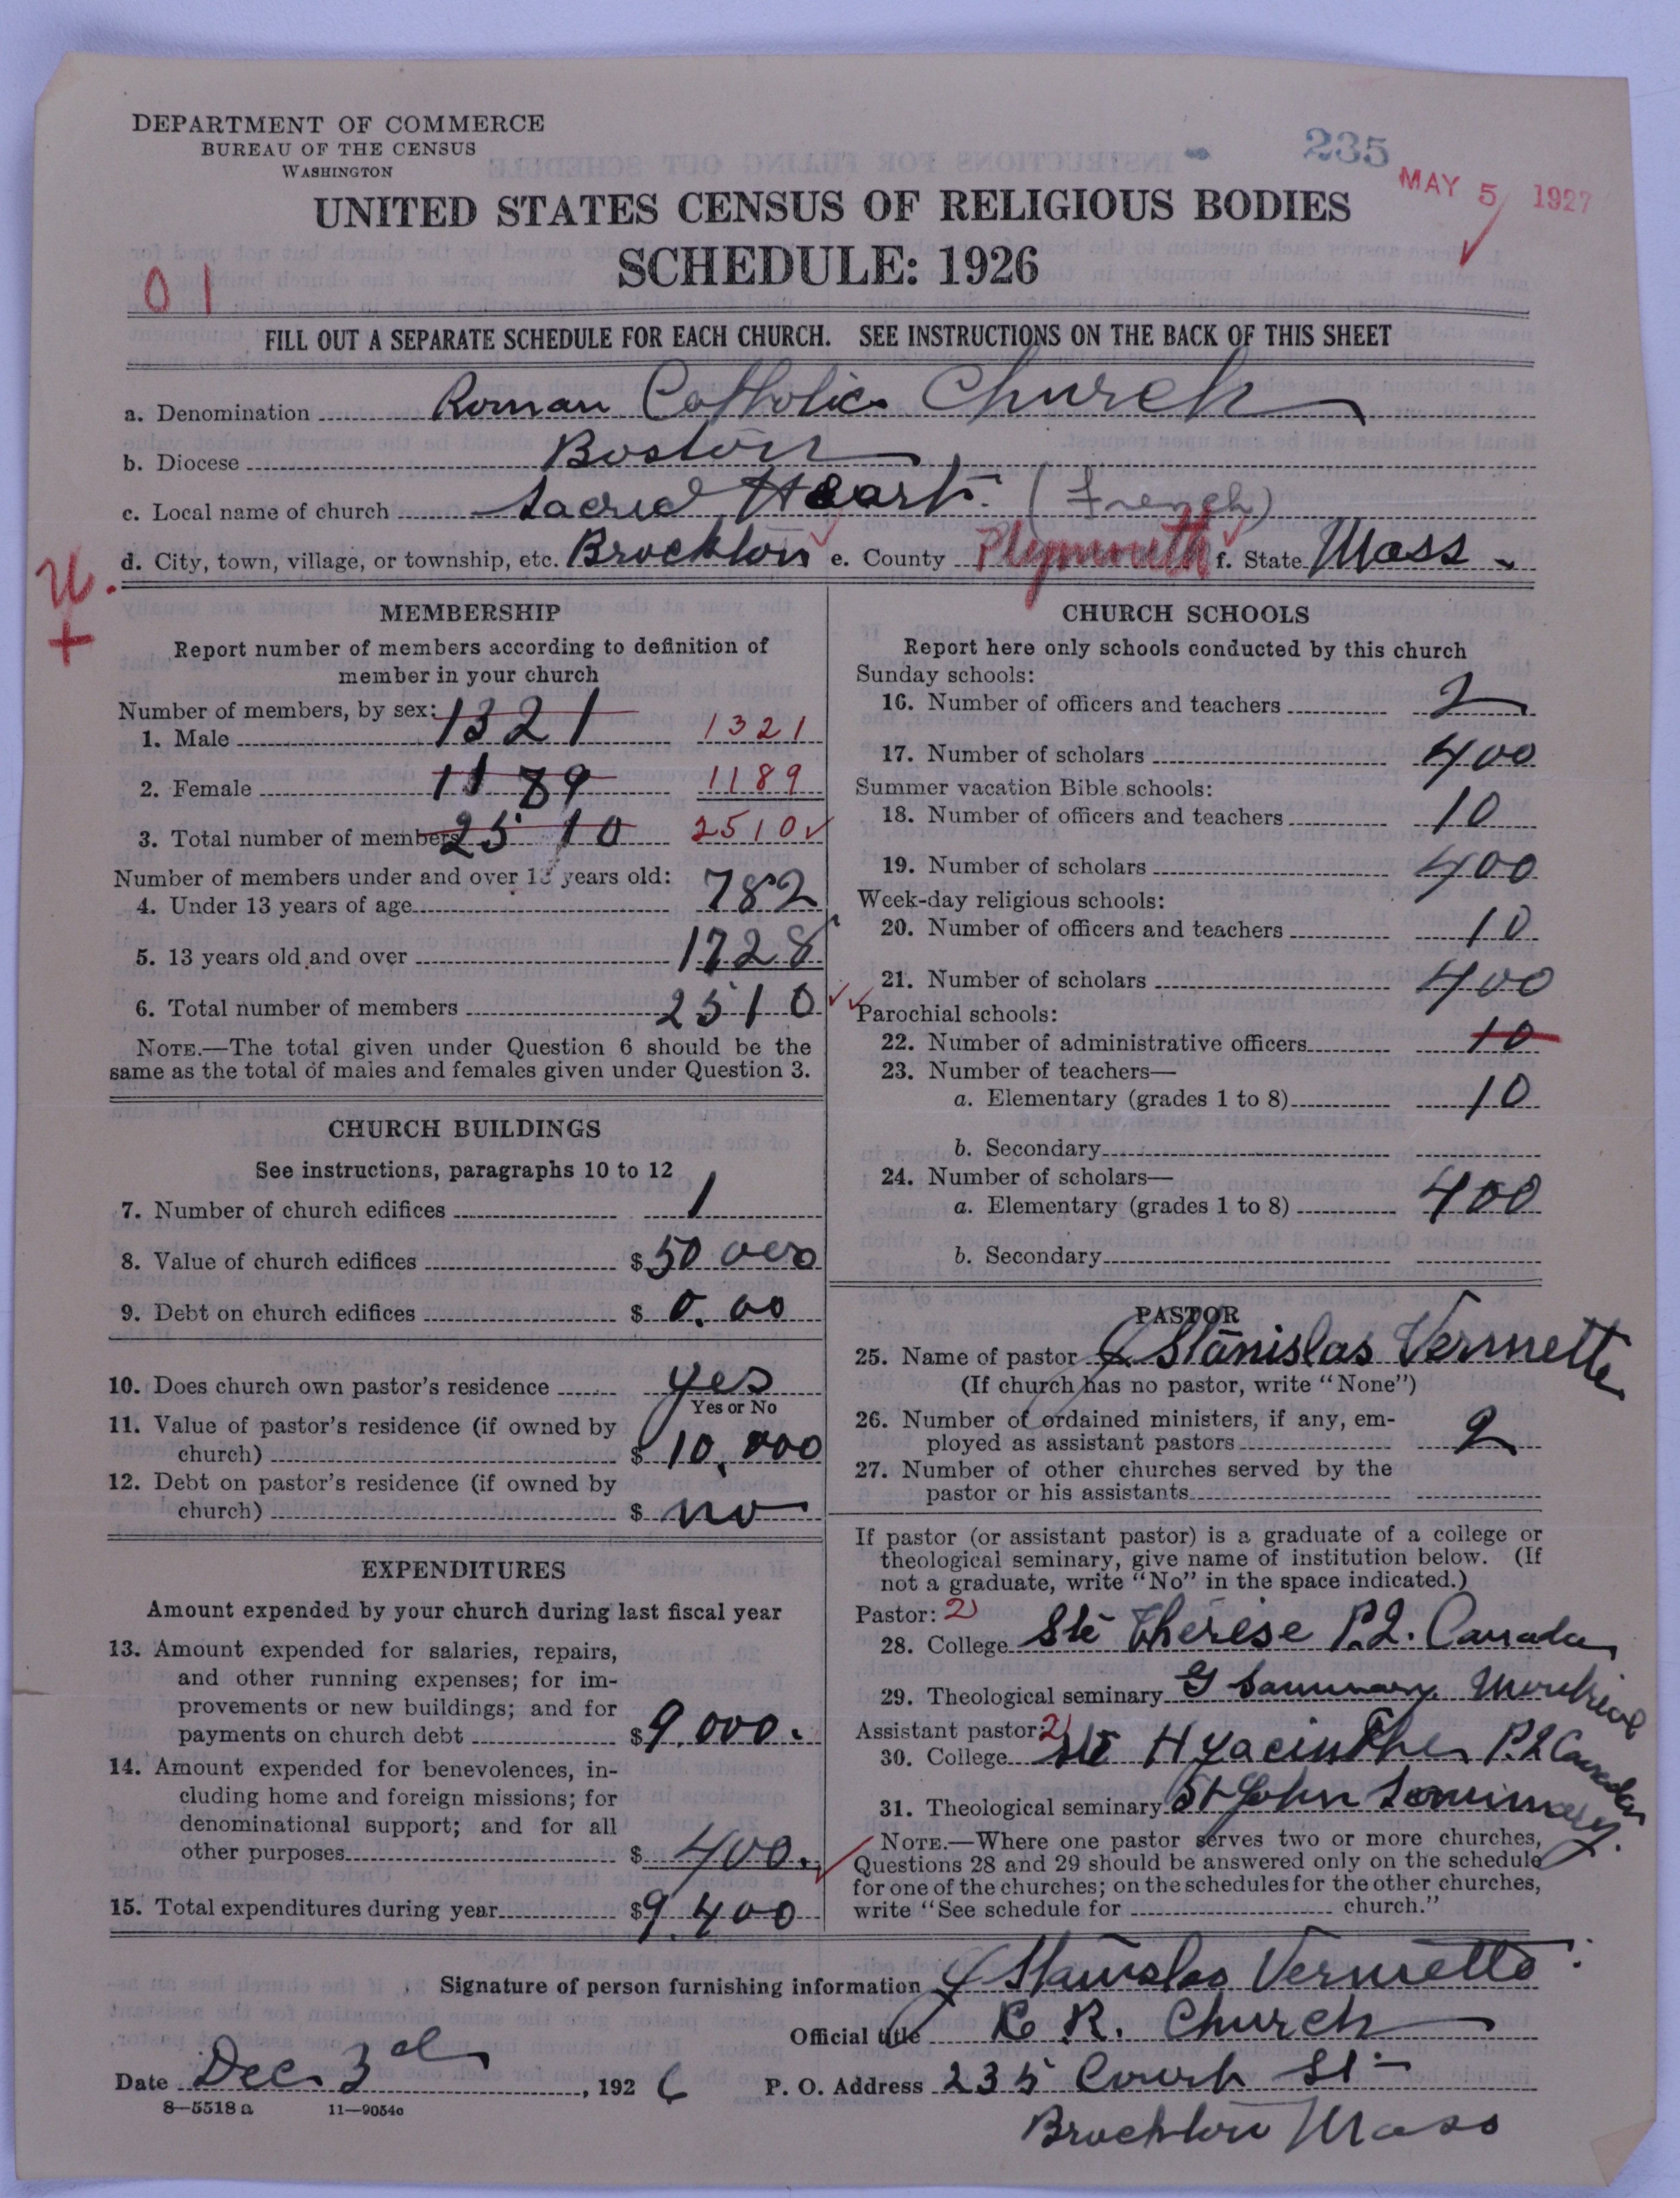 DEPARTMENT OF COMMERCE
BUREAU OF THE CENSUS
WASHINGTON
235
MAY 5 1927
UNITED STATES CENSUS OF RELIGIOUS BODIES
SCHEDULE: 1926
01
FILL OUT A SEPARATE SCHEDULE FOR EACH CHURCH. SEE INSTRUCTIONS ON THE BACK OF THIS SHEET
a. Denomination Roman Catholic Church
b. Diocese Boston
c. Local name of church Sacred Heart. (French)
d. City, town, village, or township, etc. Brockton e. County Plymouth f. State Mass
U.
+
MEMBERSHIP
Report number of members according to definition of
member in your church
Number of members, by sex:
1. Male 1321 1321
2. Female 1189 1189
3. Total number of members 2510 2510
Number of members under and over 13 years old:
4. Under 13 years of age 782
5. 13 years old and over 1728
6. Total number of members 2510
NOTE.—The total given under Question 6 should be the
same as the total of males and females given under Question 3.
CHURCH BUILDINGS
See instructions, paragraphs 10 to 12
7. Number of church edifices 1
8. Value of church edifices $50 000
9. Debt on church edifices $ 0.00
10. Does church own pastor's residence yes
Yes or No
11. Value of pastor's residence (if owned by
church) $ 10,000
12. Debt on pastor's residence (if owned by
church) $ no
EXPENDITURES
Amount expended by your church during last fiscal year
13. Amount expended for salaries, repairs,
and other running expenses; for im-
provements or new buildings; and for
payments on church debt $9.000.
14. Amount expended for benevolences, in-
cluding home and foreign missions; for
denominational support; and for all
other purposes $ 400.
15. Total expenditures during year $9.400
CHURCH SCHOOLS
Report here only schools conducted by this church
Sunday schools:
16. Number of officers and teachers 2
17. Number of scholars 400
Summer vacation Bible schools:
18. Number of officers and teachers 10
19. Number of scholars 400
Week-day religious schools:
20. Number of officers and teachers 10
21. Number of scholars 400
Parochial schools:
22. Number of administrative officers 10
23. Number of teachers—
a. Elementary (grades 1 to 8) 10
b. Secondary
24. Number of scholars—
a. Elementary (grades 1 to 8) 400
b. Secondary
PASTOR
25. Name of pastor J Stanislas Vermette
(If church has no pastor, write "None")
26. Number of ordained ministers, if any, em-
ployed as assistant pastors 2
27. Number of other churches served by the
pastor or his assistants
If pastor (or assistant pastor) is a graduate of a college or
theological seminary, give name of institution below. (If
not a graduate, write "No" in the space indicated.)
Pastor: 2
28. College Ste Therese P.Q. Canada
29. Theological seminary G Seminary Montreal
Assistant pastor: 2
30. College St Hyacinthe P.Q Canada
31. Theological seminary St John Seminary.
NOTE.—Where one pastor serves two or more churches,
Questions 28 and 29 should be answered only on the schedule
for one of the churches; on the schedules for the other churches,
write "See schedule for church."
Signature of person furnishing information J Stanislas Vermette
Official title R. R. Church
Date Dec. 3d, 1926 P. O. Address 235 Court St
8—5518a 11—9054c
Brockton Mass